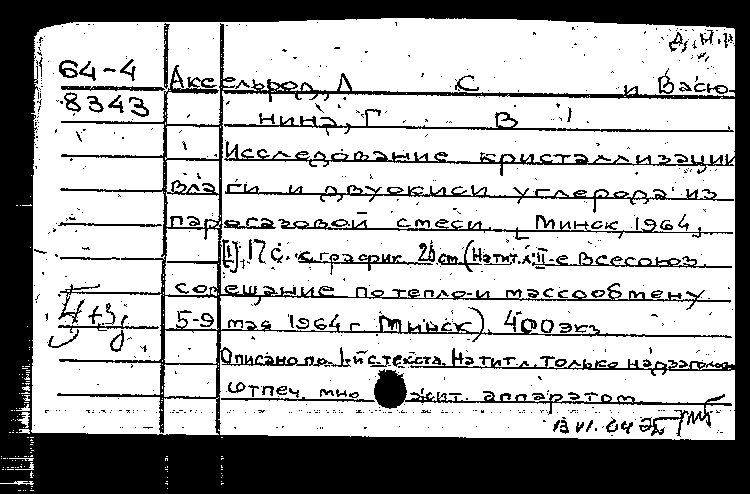 Д.Н.И
64-4 Аксельрод, Л С и Васю-
8343 нина, Г В
Исследование кристаллизации
влаги и двуокиси углерода из
парогазовой смеси. [Минск, 1964,
[1], 17 с. с график 20 см (На тит. л: II-е Всесоюз.
совещание по тепло- и массообмену
5-9 мая 1964 г Минск). 400 экз.
Описано по 1-й с. текста. На тит л. только надзаголов
Отпеч. мно жит. аппаратом
13 VI. 64